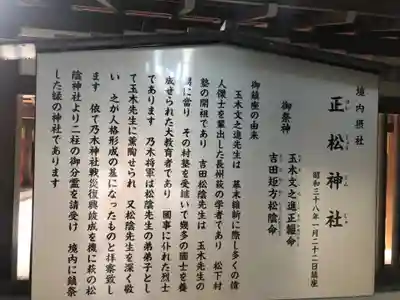 境内摂社
正松神社
昭和三十八年一月二十二日鎮座
御祭神
玉木文之進正韞命
吉田矩方松陰命
御鎮座の由来
玉木文之進先生は 幕末維新に際し多くの偉
人傑士を輩出した長州萩の学者であり 松下村
塾の開祖であり 吉田松陰先生は 玉木先生の
甥に当り その村塾を受継いで幾多の国士を養
成せられた大教育者であり 國事に仆れた烈士
であります 乃木将軍は松陰先生の弟弟子とし
て玉木先生に薫陶せられ 又松陰先生を深く敬
い 之が人格形成の基になったものと拝察致し
ます 依て乃木神社戦災復興竣成を機に萩の松
陰神社より二柱の御分霊を請受け 境内に鎮祭
した縁の神社であります